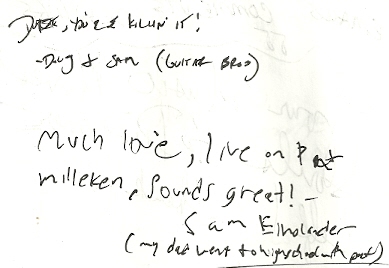 Dude, you're killin it!
-Doug & Sam (Guitar Bros)
Much love, live on P
milleken, sounds great! -
Sam
(my dad went to highschool with